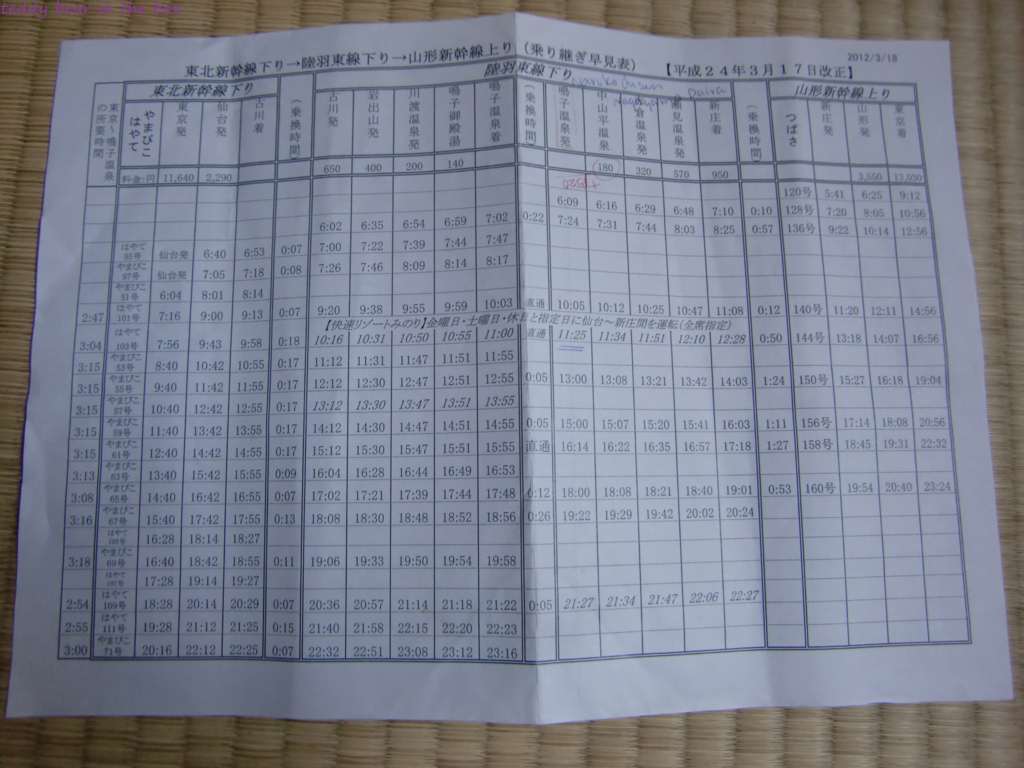 2012/3/18
東北新幹線下り→陸羽東線下り→山形新幹線上り(乗り継ぎ早見表) 【平成24年3月17日改正】
東北新幹線下り 陸羽東線下り 山形新幹線上り
東京~鳴子温泉の所要時間 やまびこ はやて 東京発 仙台発 古川着 (乗換時間) 古川発 岩出山発 川渡温泉発 鳴子御殿湯 鳴子温泉着 (乗換時間) 鳴子温泉発 中山平温泉 赤倉温泉発 瀬見温泉発 新庄着 (乗換時間) つばさ 新庄発 山形発 東京着
料金:円 11,640 2,290 650 400 200 140 (180) 320 570 950
120号 5:41 6:25 9:12
6:09 6:16 6:29 6:48 7:10 0:10 128号 7:20 8:05 10:56
6:02 6:35 6:54 6:59 7:02 0:22 7:24 7:31 7:44 8:03 8:25 0:57 136号 9:22 10:14 12:56
はやて 仙台発 6:40 6:53 0:07 7:00 7:22 7:39 7:44 7:47
やまびこ 仙台発 7:05 7:18 0:08 7:26 7:46 8:09 8:14 8:17
やまびこ 51号 6:04 8:01 8:14
2:47 はやて 101号 7:16 9:00 9:13 0:07 9:20 9:38 9:55 9:59 10:03 直通 10:05 10:12 10:25 10:47 11:08 0:12 140号 11:20 12:11 14:56
【快速リゾートみのり】金曜日・土曜日・休日と指定日に仙台~新庄間を運転(全席指定)
3:04 はやて 103号 7:56 9:43 9:58 0:18 10:16 10:31 10:50 10:55 11:00 直通 11:25 11:34 11:51 12:10 12:28 0:50 144号 13:18 14:07 16:56
3:15 やまびこ 53号 8:40 10:42 10:55 0:17 11:12 11:31 11:47 11:51 11:55
3:15 やまびこ 55号 9:40 11:42 11:55 0:17 12:12 12:30 12:47 12:51 12:55 0:05 13:00 13:08 13:21 13:42 14:03 1:24 150号 15:27 16:18 19:04
3:15 やまびこ 57号 10:40 12:42 12:55 0:17 13:12 13:30 13:47 13:51 13:55
3:15 やまびこ 59号 11:40 13:42 13:55 0:17 14:12 14:30 14:47 14:51 14:55 0:05 15:00 15:07 15:20 15:41 16:03 1:11 156号 17:14 18:08 20:56
3:15 やまびこ 61号 12:40 14:42 14:55 0:17 15:12 15:30 15:47 15:51 15:55 直通 16:14 16:22 16:35 16:57 17:18 1:27 158号 18:45 19:31 22:32
3:13 やまびこ 63号 13:40 15:42 15:55 0:09 16:04 16:28 16:44 16:49 16:53
3:08 やまびこ 65号 14:40 16:42 16:55 0:07 17:02 17:21 17:39 17:44 17:48 0:12 18:00 18:08 18:21 18:40 19:01 0:53 160号 19:54 20:40 23:24
3:16 やまびこ 67号 15:40 17:42 17:55 0:13 18:08 18:30 18:48 18:52 18:56 0:26 19:22 19:29 19:42 20:02 20:24
はやて 16:28 18:14 18:27
3:18 やまびこ 69号 16:40 18:42 18:55 0:11 19:06 19:33 19:50 19:54 19:58
はやて 17:28 19:14 19:27
2:54 はやて 109号 18:28 20:14 20:29 0:07 20:36 20:57 21:14 21:18 21:22 0:05 21:27 21:34 21:47 22:06 22:27
2:55 はやて 111号 19:28 21:12 21:25 0:15 21:40 21:58 22:15 22:20 22:23
3:00 やまびこ 71号 20:16 22:12 22:25 0:07 22:32 22:51 23:08 23:12 23:16